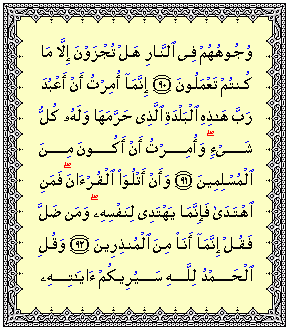 وُجُوهُهُمْ فِى ٱلنَّارِ هَلْ تُجْزَوْنَ إِلَّا مَا
كُنتُمْ تَعْمَلُونَ ٩٠ إِنَّمَآ أُمِرْتُ أَنْ أَعْبُدَ
رَبَّ هَـٰذِهِ ٱلْبَلْدَةِ ٱلَّذِى حَرَّمَهَا وَلَهُۥ كُلُّ
شَىْءٍ ۖ وَأُمِرْتُ أَنْ أَكُونَ مِنَ
ٱلْمُسْلِمِينَ ٩١ وَأَنْ أَتْلُوَا۟ ٱلْقُرْءَانَ ۖ فَمَنِ
ٱهْتَدَىٰ فَإِنَّمَا يَهْتَدِى لِنَفْسِهِۦ ۖ وَمَن ضَلَّ
فَقُلْ إِنَّمَآ أَنَا۠ مِنَ ٱلْمُنذِرِينَ ٩٢ وَقُلِ
ٱلْحَمْدُ لِلَّـهِ سَيُرِيكُمْ ءَايَـٰتِهِۦ